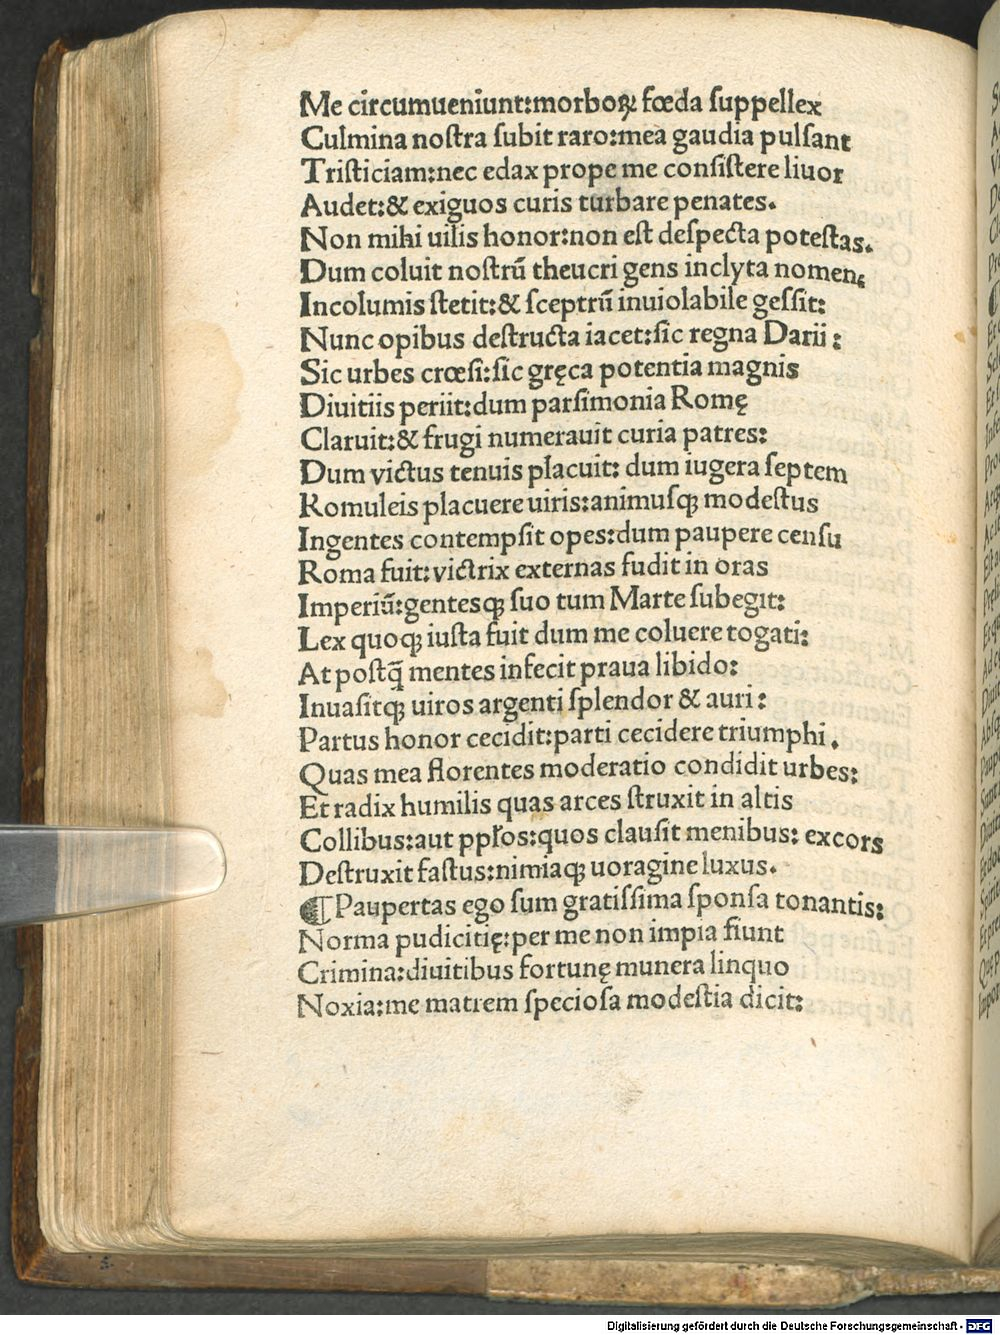 Me circumueniunt:morboꝝ fœda ſuppellex
Culmina noſtra ſubit raro:mea gaudia pulſant
Triſticiam:nec edax prope me conſiſtere liuor
Audet:& exiguos curis turbare penates.
Non mihi uilis honor:non eſt deſpecta poteſtas.
Dum coluit noſtrū theucri gens inclyta nomen,
Incolumis ſtetit:& ſceptrū inuiolabile geſſit:
Nunc opibus deſtructa iacet:ſic regna Darii :
Sic urbes crœſi:ſic gręca potentia magnis
Diuitiis periit:dum parſimonia Romę
Claruit:& frugi numerauit curia patres:
Dum victus tenuis placuit: dum iugera ſeptem
Romuleis placuere uiris:animuſqꝫ modeſtus
Ingentes contempſit opes:dum paupere cenſu
Roma fuit:victrix externas fudit in oras
Imperiū:genteſqꝫ ſuo tum Marte ſubegit:
Lex quoqꝫ iuſta fuit dum me coluere togati:
At poſtq̄ mentes infecit praua libido:
Inuaſitqꝫ uiros argenti ſplendor & auri :
Partus honor cecidit:parti cecidere triumphi.
Quas mea florentes moderatio condidit urbes:
Et radix humilis quas arces ſtruxit in altis
Collibus:aut pp̄łos:quos clauſit menibus: excors
Deſtruxit faſtus:nimiaqꝫ uoragine luxus.
¶Paupertas ego ſum gratiſſima ſponſa tonantis:
Norma pudicitię:per me non impia fiunt
Crimina:diuitibus fortunę munera linquo
Noxia:me matrem ſpecioſa modeſtia dicit:
Digitalisierung gefördert durch die Deutsche Forschungsgemeinschaft - DFG